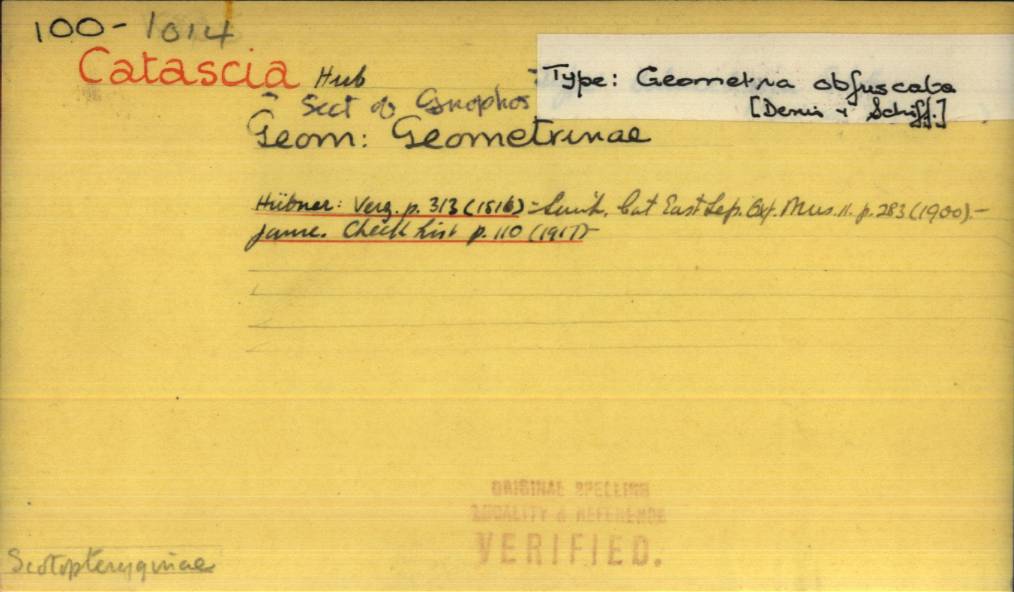 100-1014
Catascia Hub
- Type: Geometria obfuscata
[Denis + Schiff.]
= Sect of Gnophos
Geom: Geometrinae
Hübner: Verz. p. 313 (1816) - Swinh. Cat East Lep. Oxf. Mus. II. p. 283 (1900). -
Check List p. 110 (1917)
ORIGINAL SPELLING
LOCALITY & REFERENCE
VERIFIED.
Scotopteryginae